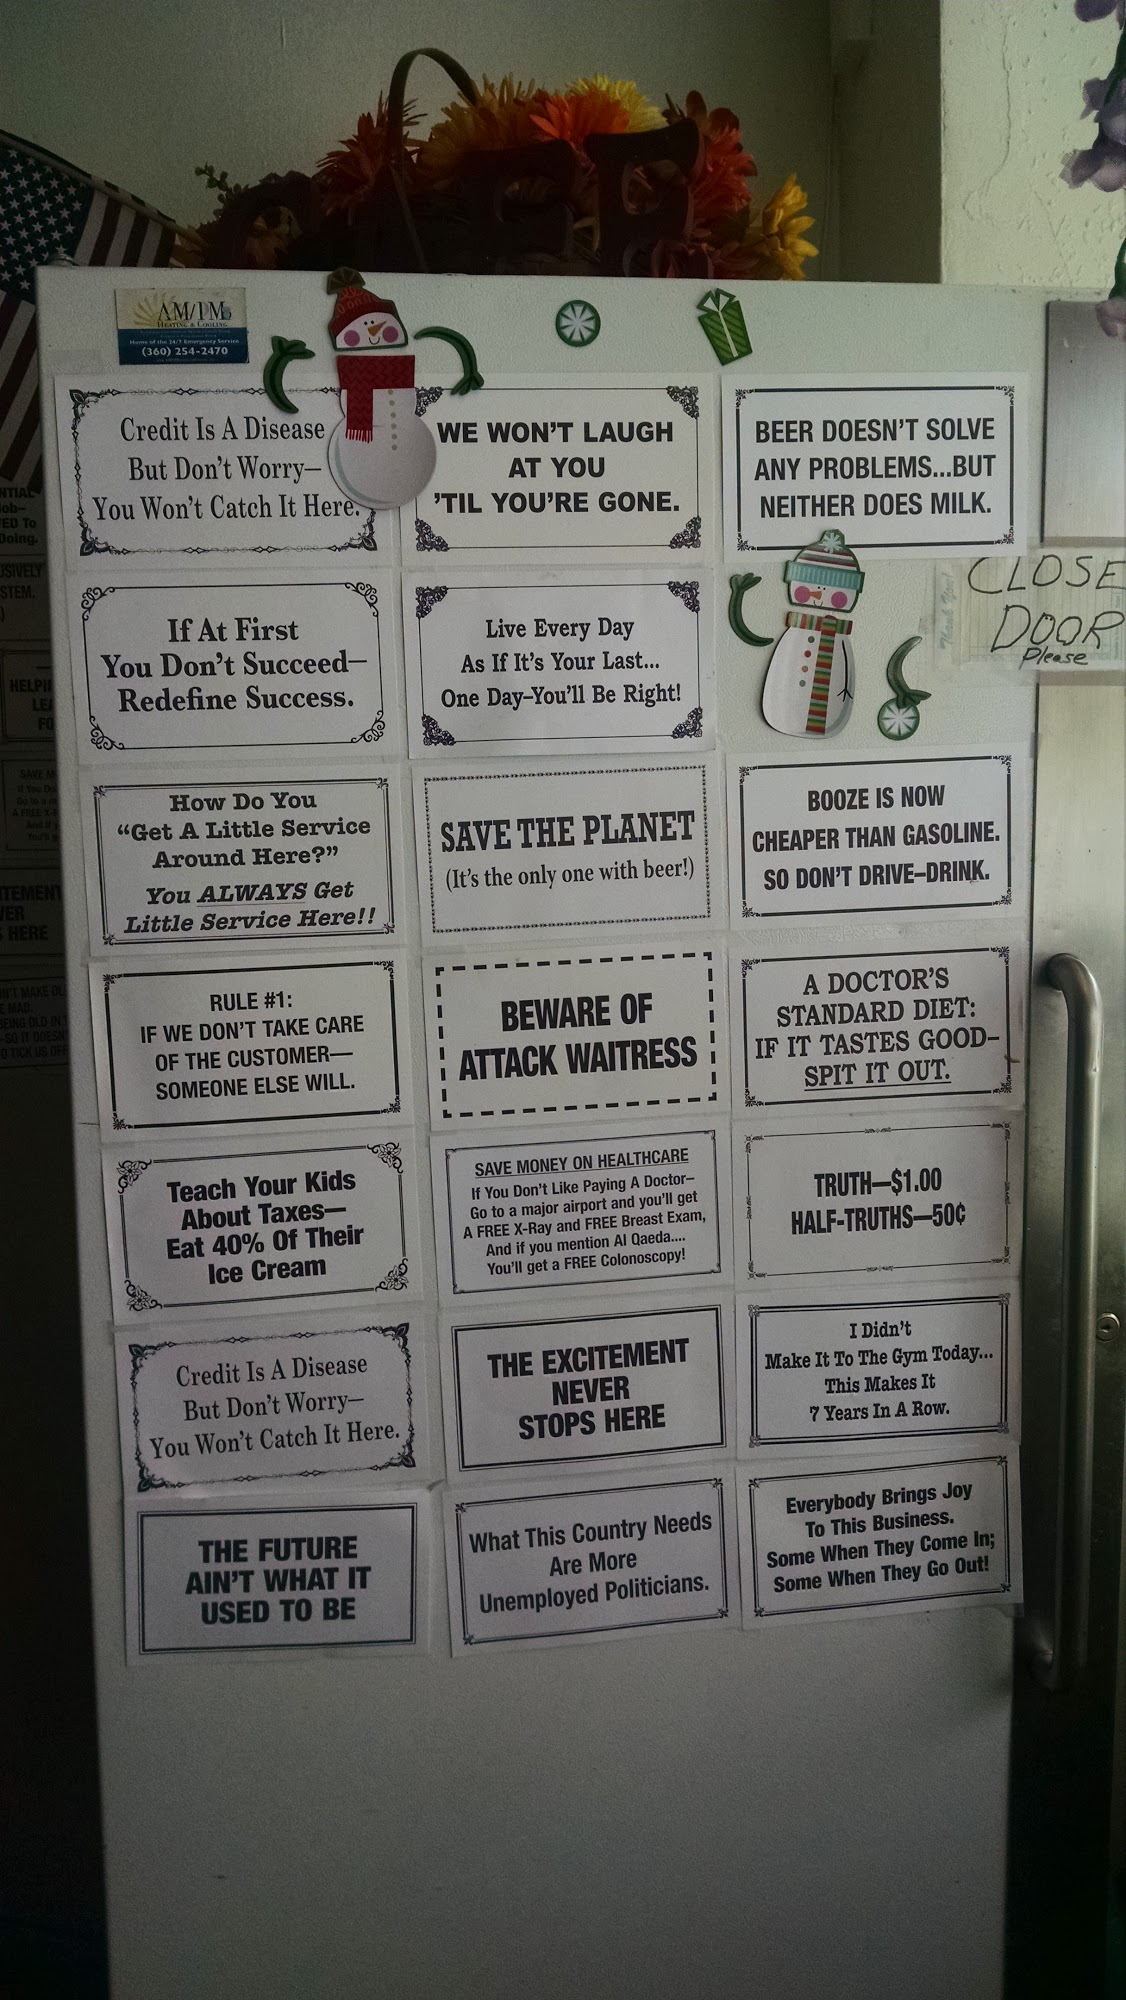 AM/PM
HEATING & COOLING
Home of the 24/7 Emergency Service
(360) 254-2470
Credit Is A Disease
But Don't Worry—
You Won't Catch It Here.
WE WON'T LAUGH
AT YOU
'TIL YOU'RE GONE.
BEER DOESN'T SOLVE
ANY PROBLEMS...BUT
NEITHER DOES MILK.
CLOSE
DOOR
Please
Thank You!
If At First
You Don't Succeed—
Redefine Success.
Live Every Day
As If It's Your Last...
One Day–You'll Be Right!
How Do You
“Get A Little Service
Around Here?”
You ALWAYS Get
Little Service Here!!
SAVE THE PLANET
(It's the only one with beer!)
BOOZE IS NOW
CHEAPER THAN GASOLINE.
SO DON'T DRIVE–DRINK.
RULE #1:
IF WE DON'T TAKE CARE
OF THE CUSTOMER—
SOMEONE ELSE WILL.
BEWARE OF
ATTACK WAITRESS
A DOCTOR'S
STANDARD DIET:
IF IT TASTES GOOD–
SPIT IT OUT.
Teach Your Kids
About Taxes—
Eat 40% Of Their
Ice Cream
SAVE MONEY ON HEALTHCARE
If You Don't Like Paying A Doctor–
Go to a major airport and you'll get
A FREE X-Ray and FREE Breast Exam,
And if you mention Al Qaeda....
You'll get a FREE Colonoscopy!
TRUTH—$1.00
HALF-TRUTHS—50¢
Credit Is A Disease
But Don't Worry—
You Won't Catch It Here.
THE EXCITEMENT
NEVER
STOPS HERE
I Didn't
Make It To The Gym Today...
This Makes It
7 Years In A Row.
THE FUTURE
AIN'T WHAT IT
USED TO BE
What This Country Needs
Are More
Unemployed Politicians.
Everybody Brings Joy
To This Business.
Some When They Come In;
Some When They Go Out!